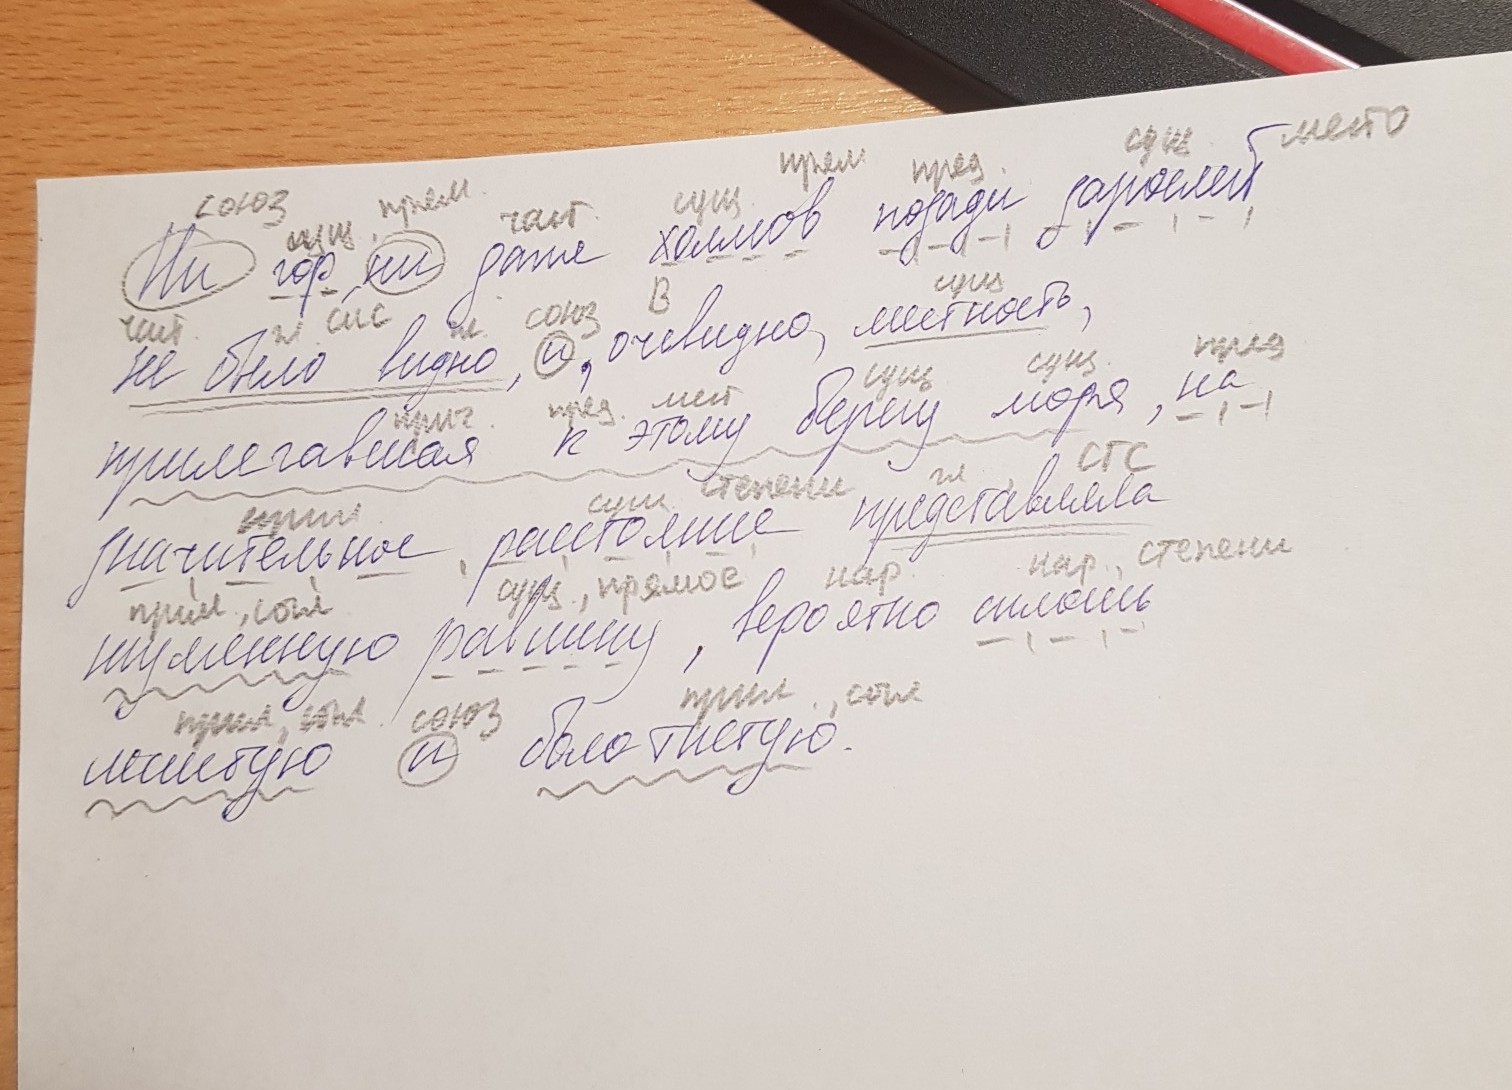 прям пред. сущ место
союз сущ, прям. част. сущ.
Ни гор, ни даже холмов позади зарослей
част гл СИС союз В сущ
не было видно, и, очевидно, местность,
прич. пред. мест сущ сущ. пред
прилегавшая к этому берегу моря, на
прил сущ. степени гл, СГС
значительное расстояние представляла
прил, согл сущ., прямое нар. нар., степени
равнину, вероятно сплошь
прил, согл союз прил., согл
и болотистую.